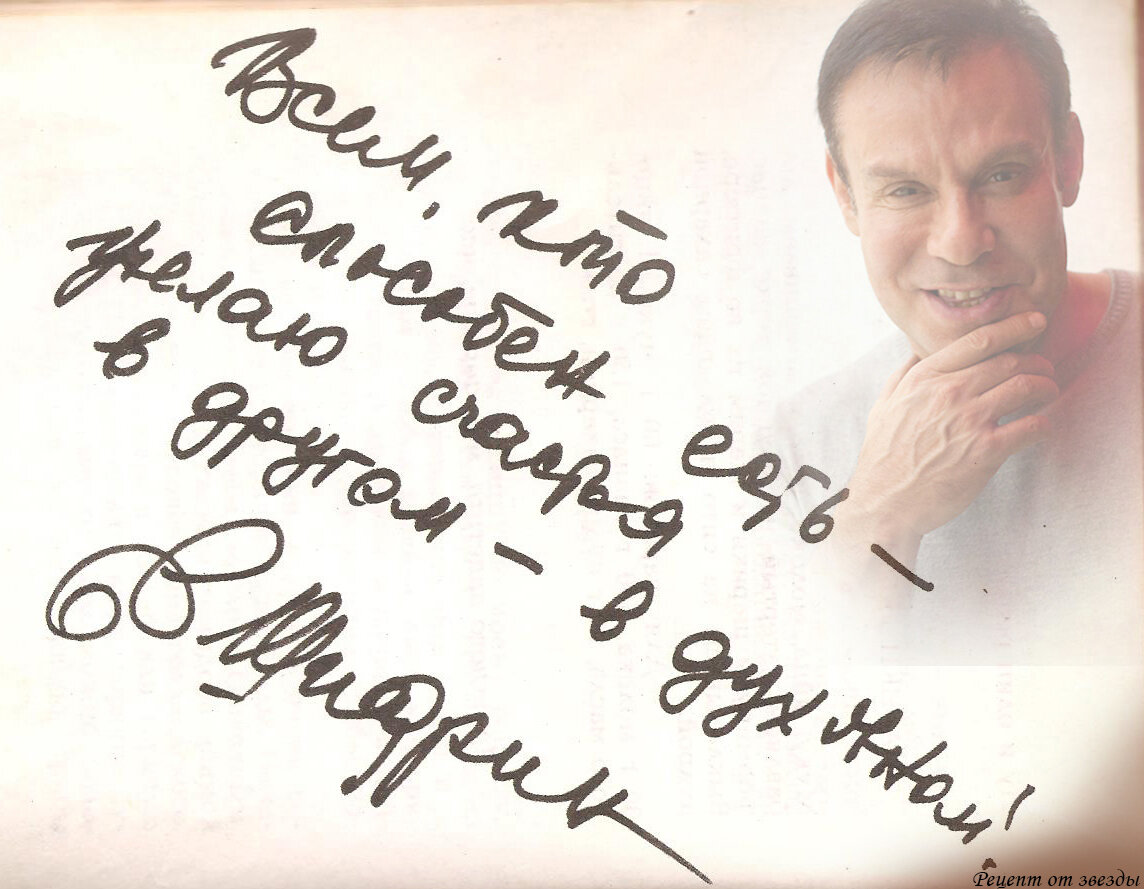 Всем, кто
способен есть –
желаю счастья
в другом – в духовном!
В Щедрин
Рецепт от звезды